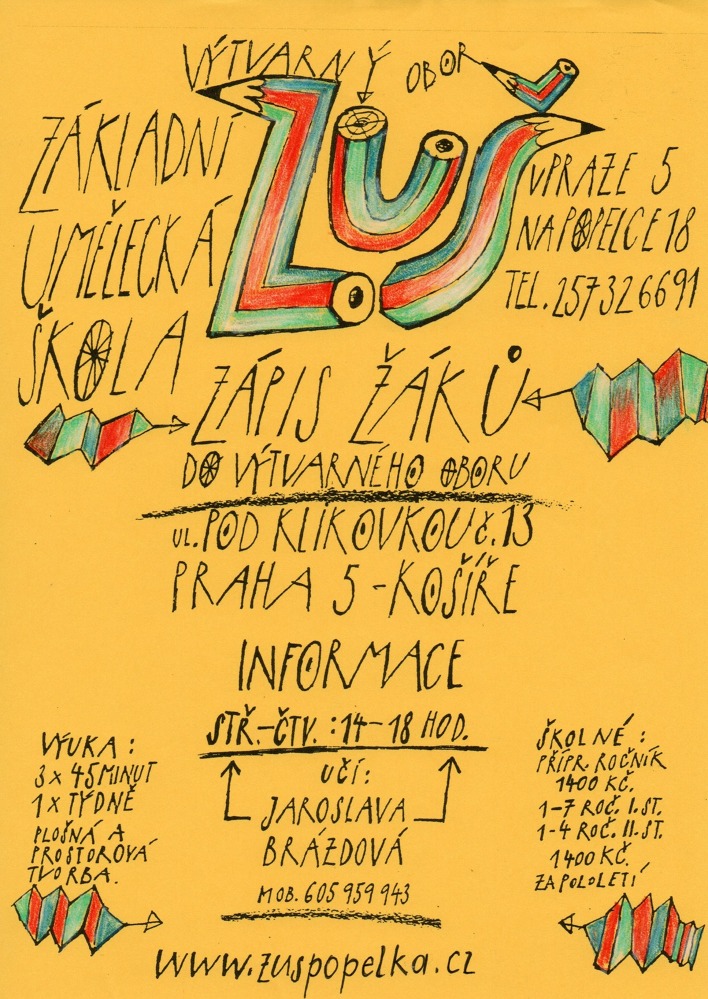 VÝTVARNÝ OBOR
ZÁKLADNÍ
UMĚLECKÁ
ŠKOLA
ZUŠ
V PRAZE 5
NA POPELCE 18
TEL. 257326691
ZÁPIS ŽÁKŮ
DO VÝTVARNÉHO OBORU
UL. POD KLIKOVKOU č. 13
PRAHA 5 - KOŠÍŘE
INFORMACE
STŘ.-ČTV. : 14-18 HOD.
UČÍ:
JAROSLAVA
BRÁZDOVÁ
MOB. 605 959 943
VÝUKA :
3 x 45 MINUT
1 x TÝDNĚ
PLOŠNÁ A
PROSTOROVÁ
TVORBA.
ŠKOLNÉ :
PŘÍPR. ROČNÍK
1400 KČ.
1-7 ROČ. I. ST.
1-4 ROČ. II. ST.
1400 KČ.
ZA POLOLETÍ
www.zuspopelka.cz